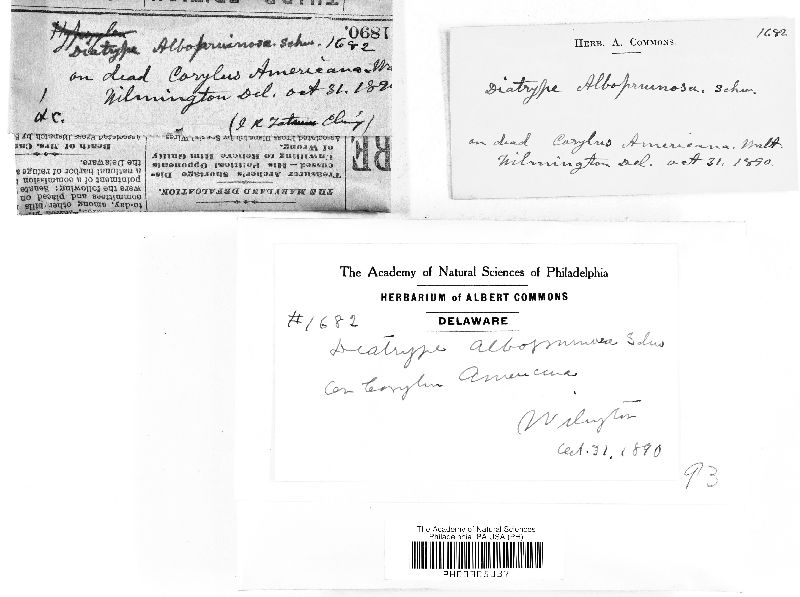 1890.
Diatrype Albopruinosa. Schw. 1682
on dead Corylus Americana
Wilmington Del. oct 31. 189
THE MARYLAND DEFALCATION.
Treasurer Archer's Shortage Dis-
cussed—His Political Opponents
Unwilling to Relieve Him Entirely
of Wrong.
to-day, among other bills
committees and placed on
were the following: Senate
pointment of a commission
a national harbor of refuge
the Delaware.
Death of Mrs.
1682
HERB. A. COMMONS.
Diatrype Albopruinosa. Schw.
on dead Corylus Americana. Walt.
Wilmington Del. oct 31. 1890.
The Academy of Natural Sciences of Philadelphia
HERBARIUM of ALBERT COMMONS
DELAWARE
#1682
Diatrype albopruinosa Schw
on Corylus Americana
Wilmington
Oct. 31, 1890
93
The Academy of Natural Sciences
Philadelphia, PA USA (PH)